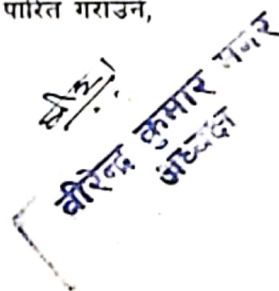 पारित गराउने,
वीरेन्द्र कुमार मगर
अध्यक्ष